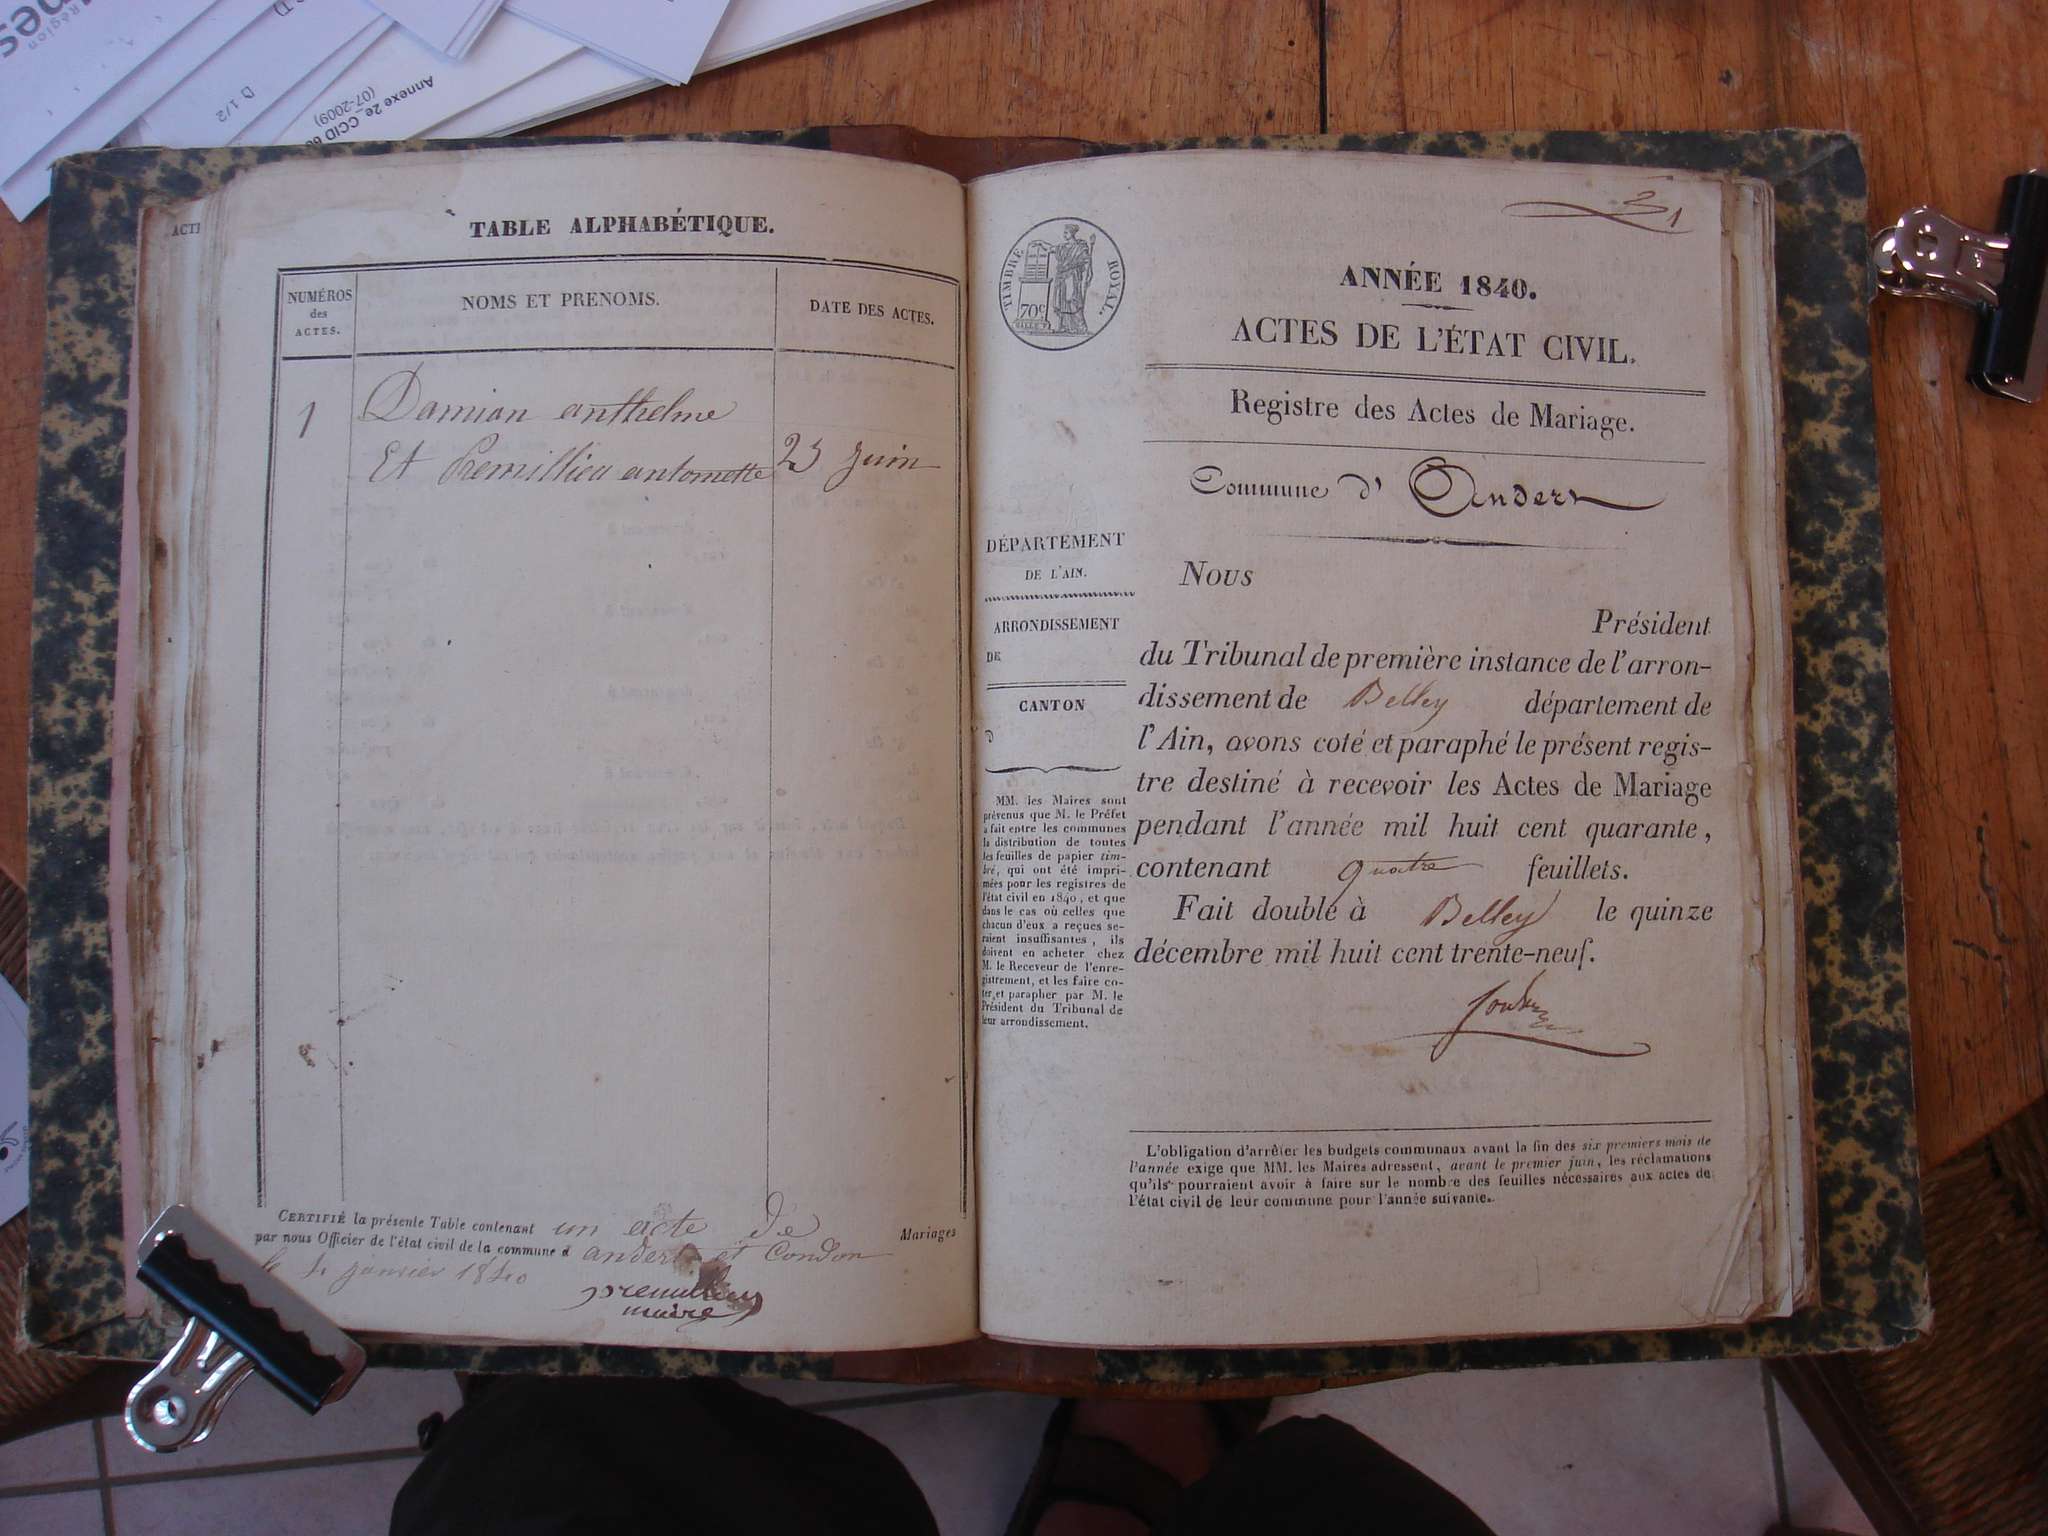 Région
D 1/2
Annexe 2e_CCID
(07-2009)
ACTI
TABLE ALPHABÉTIQUE.
NUMÉROS
des
ACTES.
NOMS ET PRENOMS.
DATE DES ACTES.
1
Damian anthelme
Et Premillieu antoinette
23 juin
CERTIFIÉ la présente Table contenant un acte de Mariages
par nous Officier de l'état civil de la commune d andert et Condon
le 4 janvier 1840
premillieu
maire
TIMBRE ROYAL.
70c
ANNÉE 1840.
ACTES DE L'ÉTAT CIVIL.
Registre des Actes de Mariage.
Commune d' Andert
DÉPARTEMENT
DE L'AIN.
ARRONDISSEMENT
DE
CANTON
D
MM. les Maires sont
prévenus que M. le Préfet
a fait entre les communes
la distribution de toutes
les feuilles de papier tim-
bré, qui ont été impri-
mées pour les registres de
l'état civil en 1840, et que
dans le cas où celles que
chacun d'eux a reçues se-
raient insuffisantes, ils
doivent en acheter chez
M. le Receveur de l'enre-
gistrement, et les faire co-
ter et parapher par M. le
Président du Tribunal de
leur arrondissement.
Nous
Président
du Tribunal de première instance de l'arron-
dissement de Belley département de
l'Ain, avons coté et paraphé le présent regis-
tre destiné à recevoir les Actes de Mariage
pendant l'année mil huit cent quarante,
contenant quatre feuillets.
Fait double à Belley le quinze
décembre mil huit cent trente-neuf.
L'obligation d'arrêter les budgets communaux avant la fin des six premiers mois de
l'année exige que MM. les Maires adressent, avant le premier juin, les réclamations
qu'ils pourraient avoir à faire sur le nombre des feuilles nécessaires aux actes de
l'état civil de leur commune pour l'année suivante.